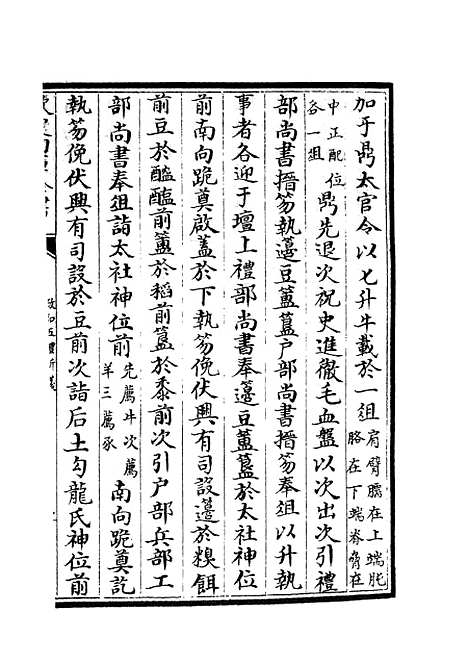 加于鼎太官令以匕升牛載於一俎肩臂臑在上端肫胳在下端脊脅在
中正配位各一俎鼎先退次祝史進徹毛血盤以次出次引禮
部尚書搢笏執籩豆簠簋户部尚書搢笏奉俎以升執
事者各迎于壇上禮部尚書奉籩豆簠簋於太社神位
前南向跪奠啟蓋於下執笏俛伏興有司設籩於糗餌
前豆於醓醢前簠於稻前簋於黍前次引户部兵部工
部尚書奉俎詣太社神位前先薦牛次薦羊三薦豕南向跪奠訖
執笏俛伏興有司設於豆前次詣后土勾龍氏神位前
政和五禮新儀